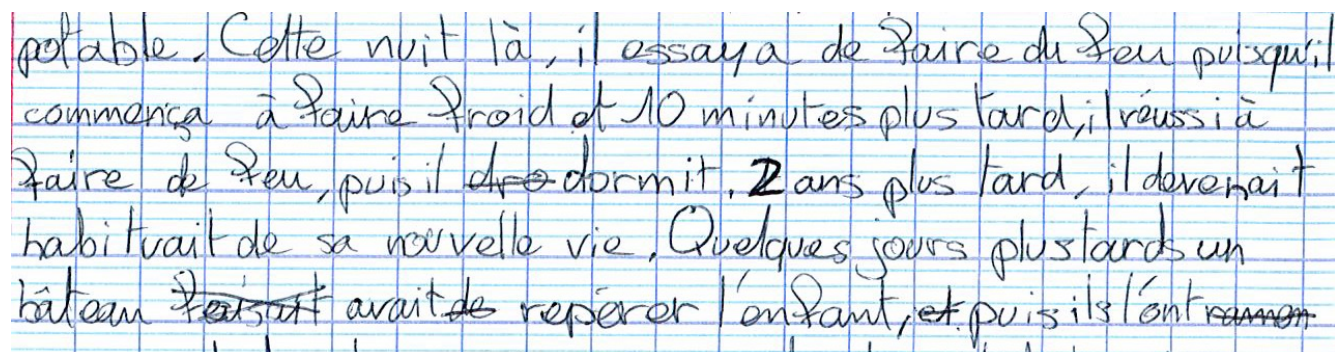 potable. Cette nuit là, il essaya de faire du feu puisqu'il
commença à faire froid et 10 minutes plus tard, il réussi à
faire de feu, puis il dro dormit. 2 ans plus tard, il devenait
habituait de sa nouvelle vie. Quelques jours plus tards un
bâteau faisait avait de repérer l'enfant, et puis ils l'ont ramen